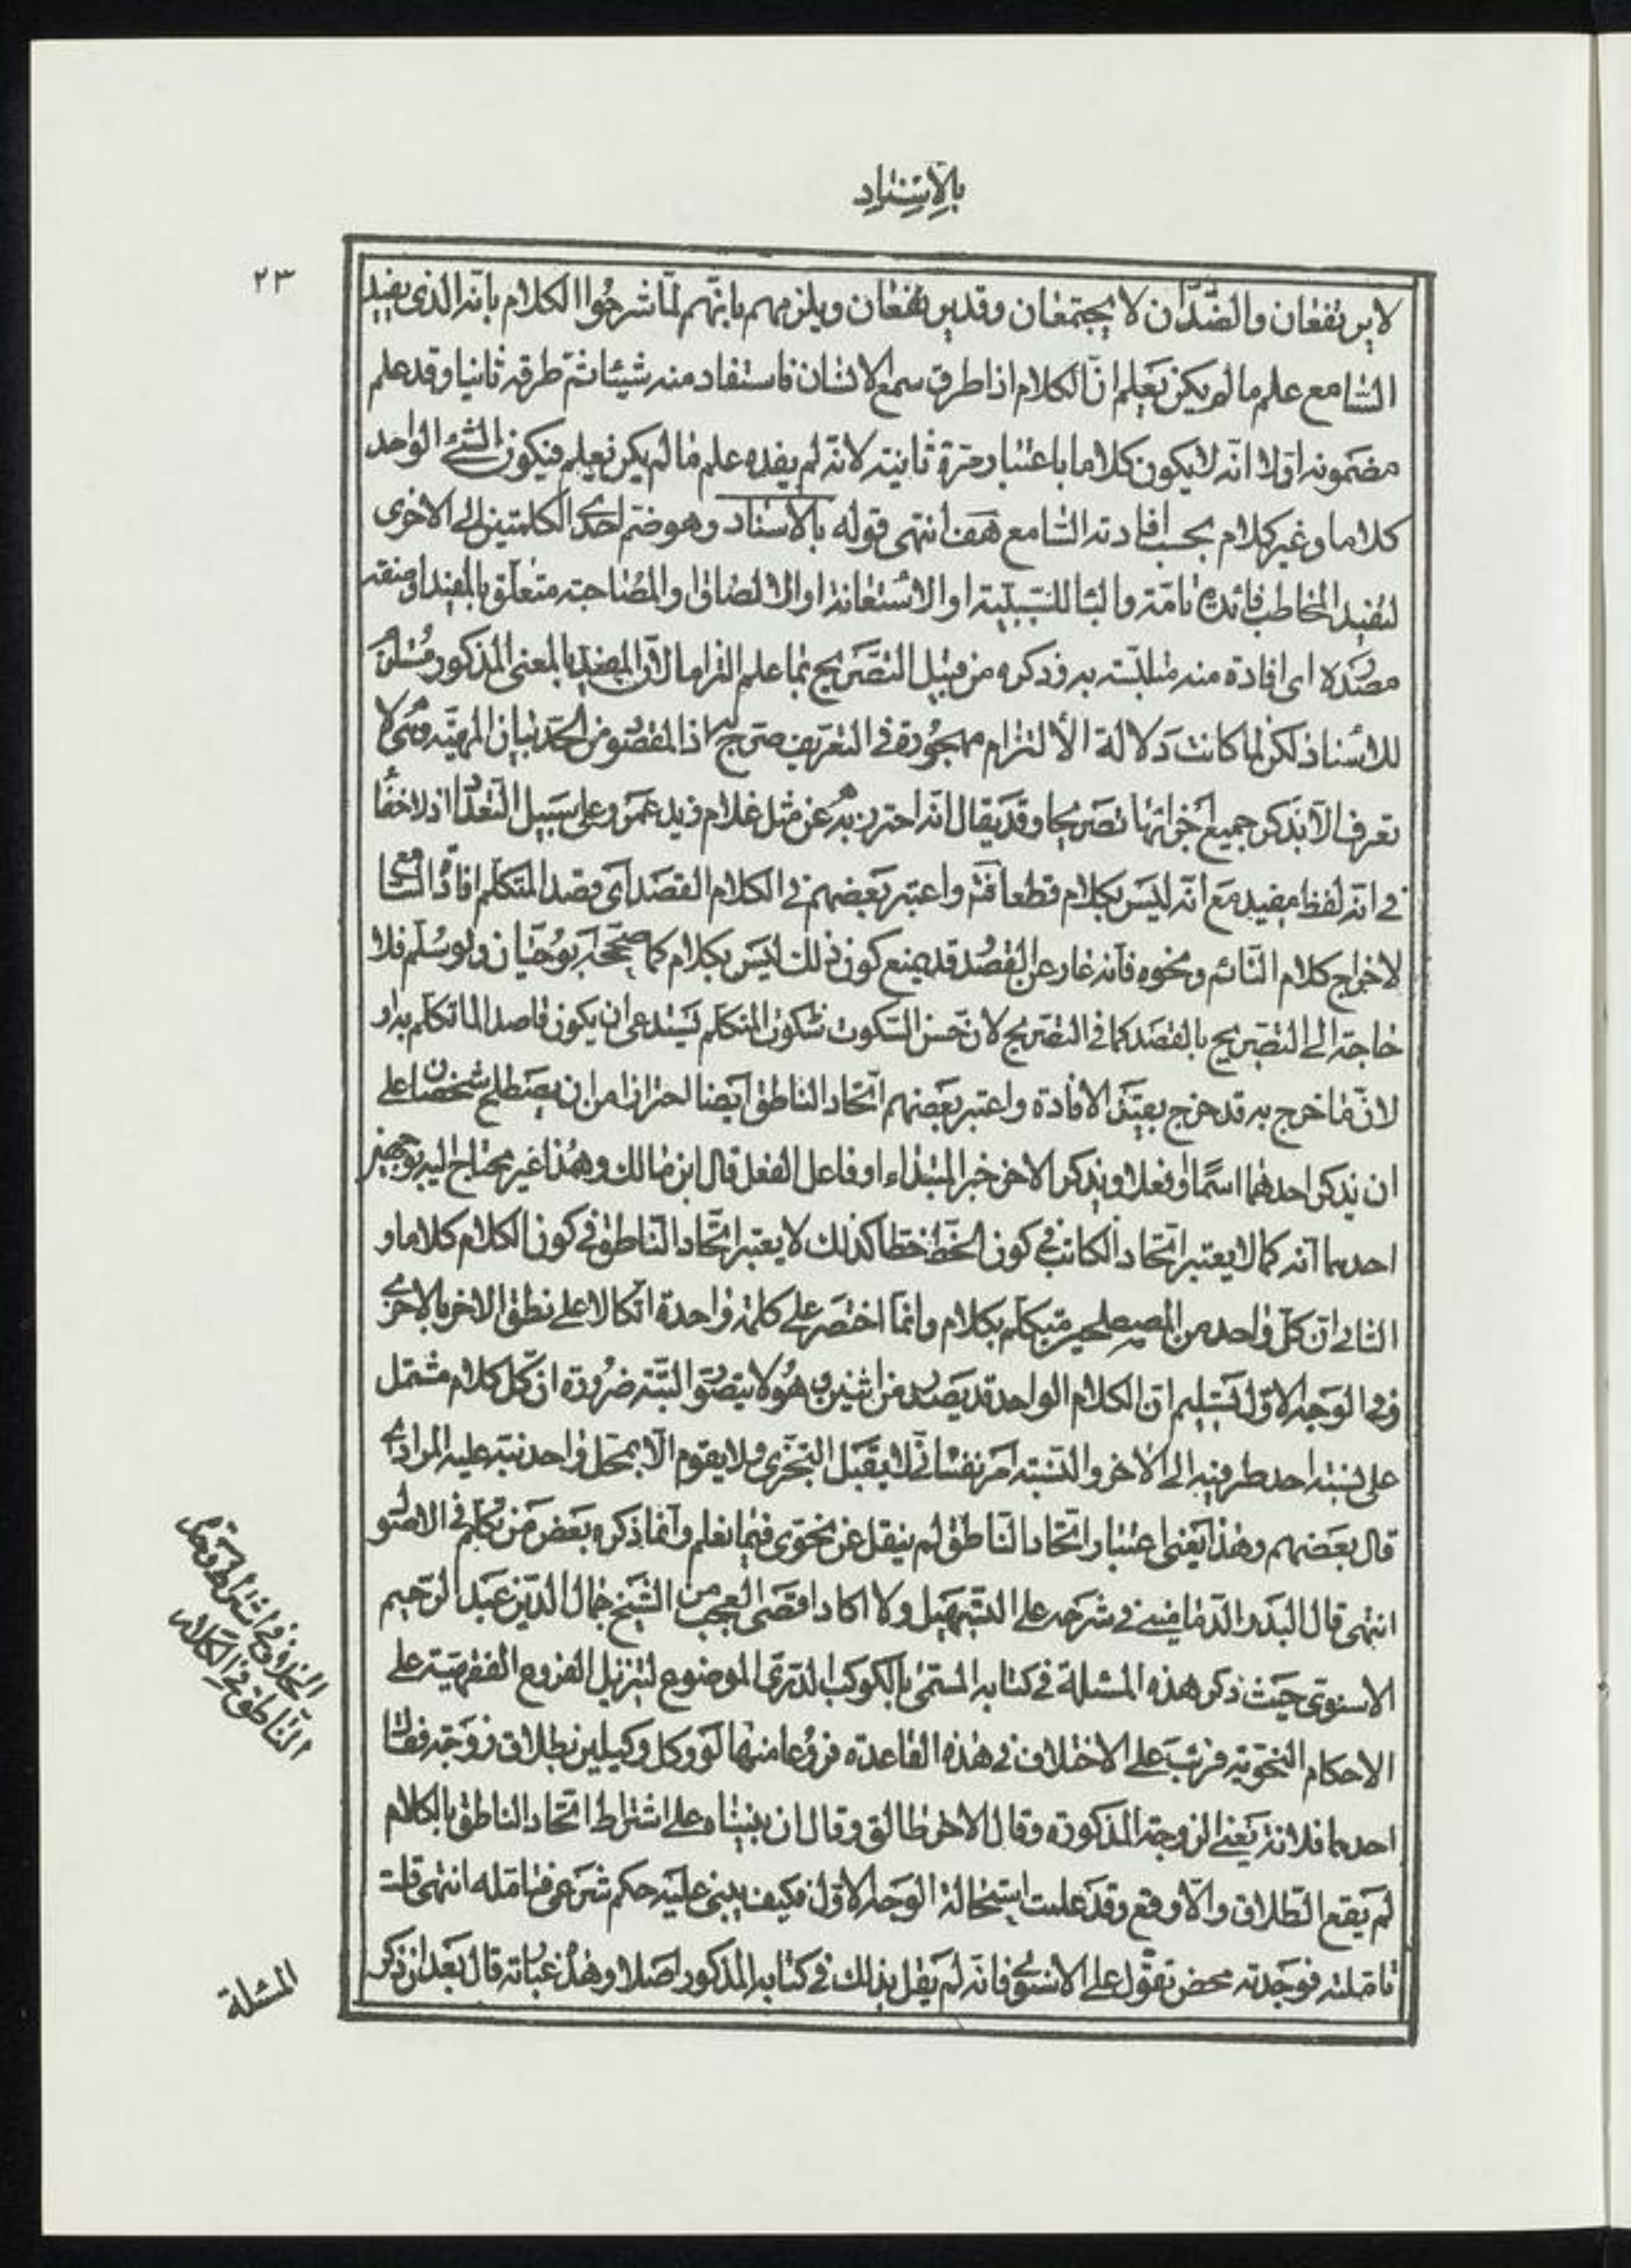 بالاسناد
٢٣
لا يرتفعان والضّدّان لا يجتمعان وقد يرتفعان ويلزمهم بانّهم لمّا شرحوا الكلام بانه الذى يفيد
السّامع علم ما لم يكن يَعلم انّ الكلام اذا طرق سمع الانسان فاستفاد منه شيئا ثمّ طرقه ثانيا وقد علم
مضمونه اوّلا انّه لا يكون كلاما باعتبار مرّة ثانية لانّه لم يفده علم ما لم يكن يعلم فيكون الشّئ الواحد
كلاما وغير كلام بحسب افادته السّامع هَف انتهى قوله بالاسناد وهو ضم احدى الكلمتين الى الاخرى
لتفيد المخاطب فائدة تامّة والبا للسّببيّة او الاستعانة او الالصاق او المصاحبة متعلّق بالمفيد او صفة
مصدره اى افادة منه متلبّسة به وذكره من قبيل التصّريح بما علم التزاما لانّ المفيد بالمعنى المذكور مستلزم
للاسناد لكن لما كانت دلالة الالتزام مهجورة فى التعريف صرّح بها اذ المقصود من الحدّ بيان المهيّة وهى لا
تعرف الّا بذكر جميع اجزائها تصريحا وقد يقال انّه احترز به عن مثل غلام زيد عمرو على سبيل التعداد اذ لا خفا
فى انّه لفظ مفيد مع انّه ليس بكلام قطعا فتم واعتبر بعضهم فى الكلام القصد اى قصد المتكلّم افادة السّامع
لاخراج كلام النّائم ونحوه فانّه عار عن القصد وقد يمنع كون ذلك ليس بكلام كما صحّحه ابو حيّان ولو سُلّم فلا
حاجة الى التصريح بالقصد كما فى التصريح لانّ حسن السّكوت سكوت المتكلّم يستدعى ان يكون قاصدا لما تكلّم به او
لانّ ما خرج به قد خرج بقيد الافادة واعتبر بعضهم اتّحاد الناطق ايضا احترازا من ان يصطلح شخصان على
ان يذكر احدهما اسمًا او فعلا ويذكر الاخر خبر المبتداء او فاعل الفعل قال ابن مالك وهذا غير محتاج اليه لوجهين
احدهما انّه كما لا يعتبر اتّحاد الكاتب فى كون الخطّ خطّا كذلك لا يعتبر اتّحاد النّاطق فى كون الكلام كلاما و
الثانى انّ كلّ واحد من المصطلحين متكلّم بكلام وانّما اختصر على كلمة واحدة اتّكالا على نطق الاخر بالاخرى
وفى الوجه الاوّل تسليم انّ الكلام الواحد قد يصدر من اثنين وهو لا يتصوّر البتّة ضرورة انّ كلّ كلام مشتمل
على نسبة احد طرفيه الى الاخر والنّسبة امر نفسانىّ لا يقبل التجزّى ولا يقوم الّا بمحلّ واحد نبّه عليه المرادى
قال بعضهم وهذا يعنى اعتبار اتّحاد النّاطق لم ينقل عن نحوى فيما نعلم وانّما ذكره بعض من تكلّم فى الاصول
انتهى قال البدر الدّمامينى فى شرحه على التّسهيل ولا اكاد اقضى العجب من الشّيخ جمال الدّين عبد الرّحيم
الاسنوىّ حيث ذكر هذه المسئلة فى كتابه المسمّى بالكوكب الدرىّ الموضوع لتنزيل الفروع الفقهيّة على
الاحكام النحويّة فرتّب على الاختلاف فى هذه القاعدة فروعا منها لو وكل وكيلين بطلاق زوجته فقال
احدهما فلانة يعنى الزوجة المذكورة وقال الاخر طالق وقال ان بنيناه على اشتراط اتّحاد الناطق بالكلام
لم يقع الطّلاق والّا وقع وقد علمت استحالة الوجه الاوّل فكيف يبنى عليه حكم شرعى فتامّله انتهى قلت
تامّلته فوجدته محض تقوّل على الاسنوى فانّه لم يقل بذلك فى كتابه المذكور اصلا وهذه عبارته قال بعد ان ذكر
الخلاف فى اشتراط وحدة
النّاطق فى الكلام
المسئلة